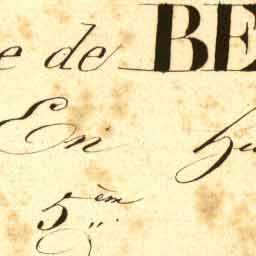 e de BE
En hu
5ème